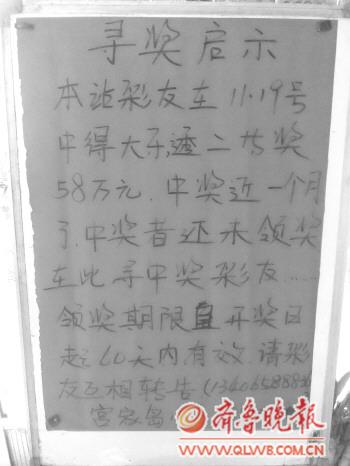 寻奖启示
本站彩友在11.19号
中得大乐透二等奖
58万元.中奖近一个月
了.中奖者还未领奖
在此寻中奖彩友……
领奖期限自开奖日
起60天内有效.请彩
友互相转告
宫家岛
齐鲁晚报
WWW.QLWB.COM.CN